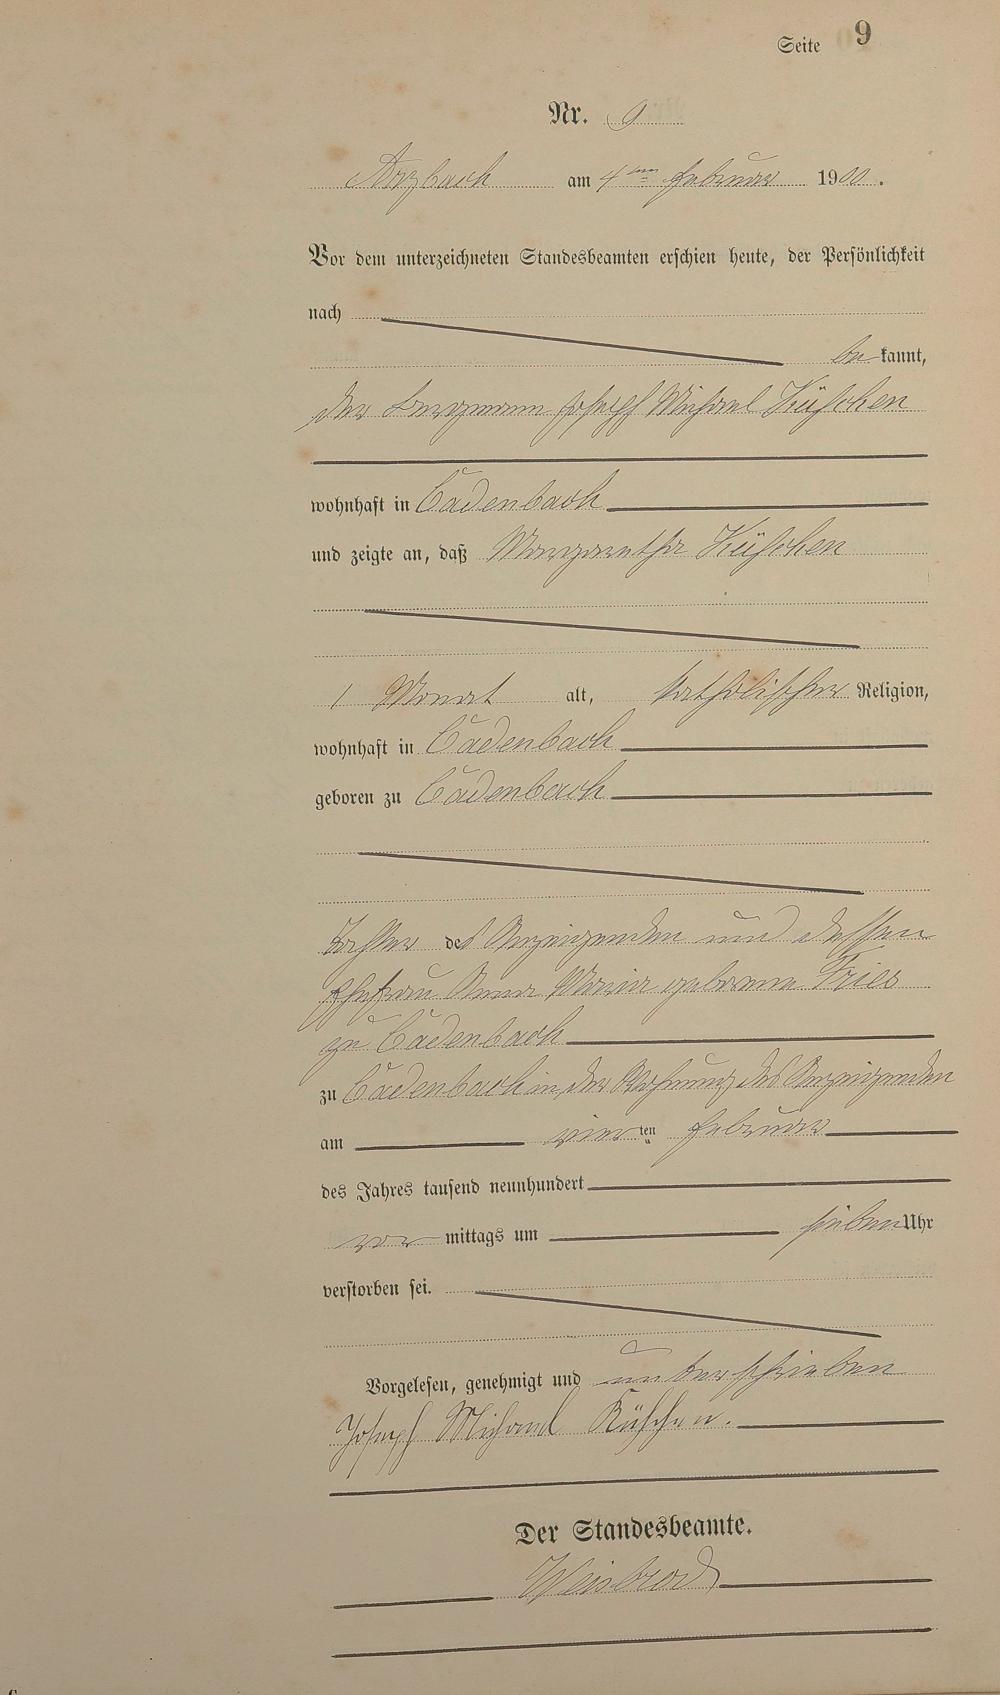 Seite 9
Nr. 9
Arzbach am 4ten Februar 1900.
Vor dem unterzeichneten Standesbeamten erschien heute, der Persönlichkeit
nach
be kannt,
der Bergmann Joseph Michael Küschen
wohnhaft in Cadenbach
und zeigte an, daß Margaretha Küschen
1 Monat alt, katholischer Religion,
wohnhaft in Cadenbach
geboren zu Cadenbach
Tochter des Anzeigenden und dessen
Ehefrau Anna Maria geborene Fries
zu Cadenbach
zu Cadenbach in der Wohnung des Anzeigenden
am vier ten Februar
des Jahres tausend neunhundert
vor mittags um sieben Uhr
verstorben sei.
Vorgelesen, genehmigt und unterschrieben
Joseph Michael Küschen.
Der Standesbeamte.
Weisbrod